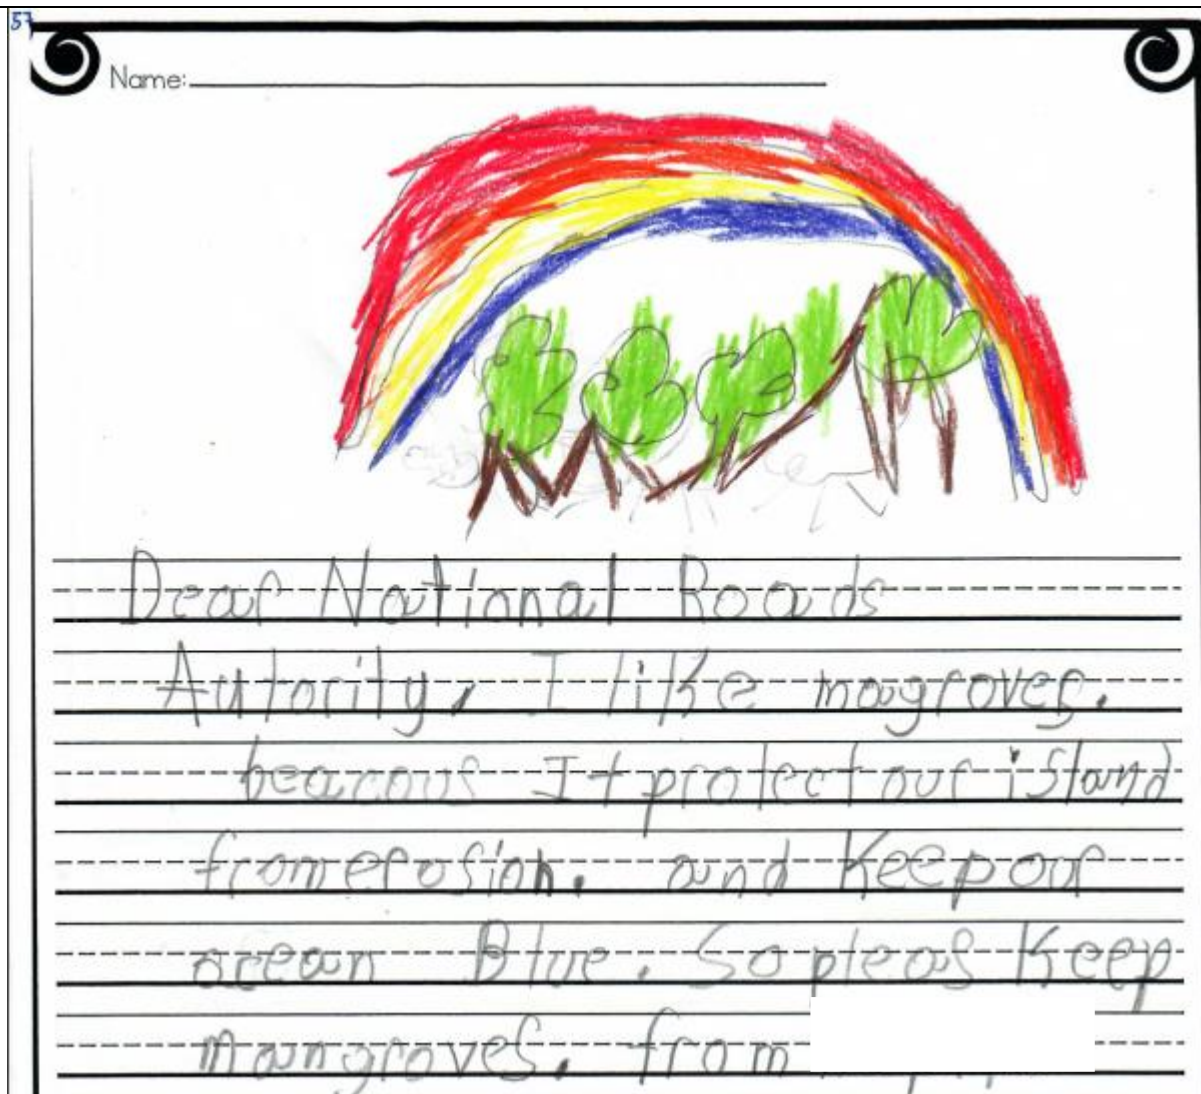 57
Name:
Dear National Roads
Autority, I like magroves.
beacaus It protect our island
from erosion. and Keep our
ocean Blue. So pleas Keep
mangroves. from